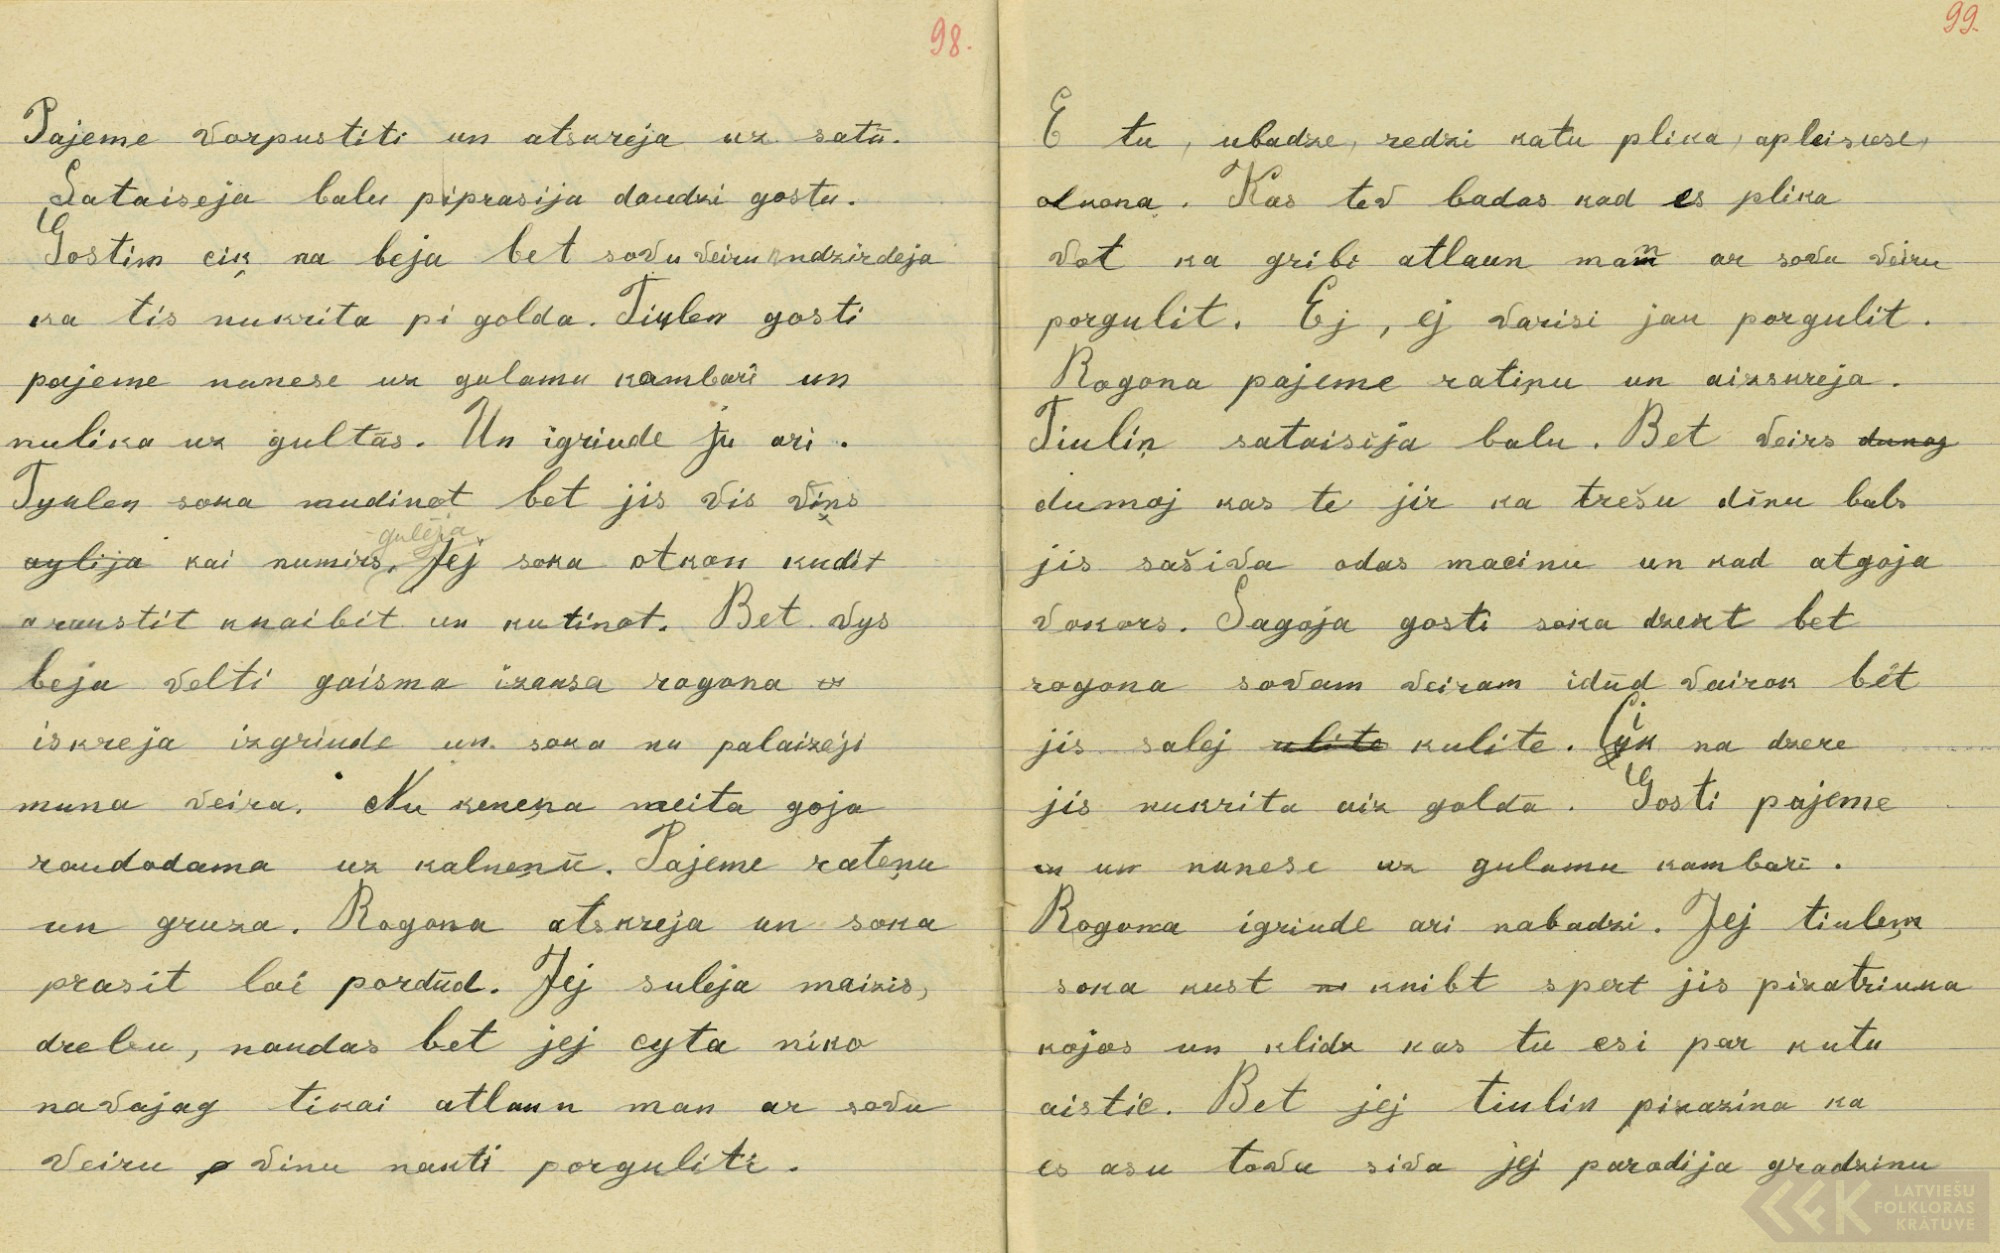 98.
Pajeme vorpustiti un atskreja uz satū.
Sataiseja balu piprasija daudzi gostu.
Gostim cik na beja bet sovu veiru nudzirdeja
ka tis nukrita pi golda. Tiulen gosti
pajeme nunese uz gulamu kambarī un
nulika uz gultās. Un igriude ju ari.
Tyulen soka mudinot bet jis vis viņs
aylija kai numirs, gulēja Jej soka otkon kudit
raustit knaibit un kutinot. Bet vys
beja velti gaisma izausa rogona iz
iskreja izgriude un soka nu palaizeji
muna veira. Nu keneņa meita goja
raudodama uz kalnenū. Pajeme rateņu
un gruza. Rogona atskreja un soka
prasit lai pordūd. Jej suleja maizis,
drebu, naudas bet jej cyta niko
navajag tikai atlaun man ar sovu
veiru p vinu nakti porguliti.
99.
E tu, ubadze, redzi katu plika, apleisuse,
olkona. Kas tev badas kad es plika
vot ka gribi atlaun man ar sovu veiru
porgulit. Ej, ej varisi jau porgulit.
Rogona pajeme ratiņu un aizskreja.
Tiuliņ sataisija balu. Bet veirs dumoj
dumoj kas te jir ka trešu dīnu bals
jis sašiva odas macinu un kad atgoja
vokors. Sagoja gosti soka dzekt bet
rogona sovam veiram idūd vairok bet
jis salej ulite kulite. Cik na dzere
jis nukrita aiz goldā. Gosti pajeme
un un nunese uz gulamu kambarī.
Rogona igriude ari nabadzi. Jej tiuleņ
soka kust knibt spert jis pizatriuka
kojas un klidz kas tu esi par kutu
aistic. Bet jej tiulin pizazina ka
es asu tovu siva jej parodija gradzinu
LATVIEŠU
FOLKLORAS
KRĀTUVE